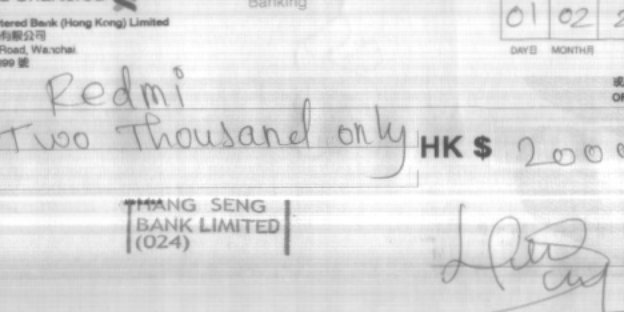 Banking
tered Bank (Hong Kong) Limited
有限公司
Road, Wanchai
399 號
01 02 2
DAY日 MONTH月
Redmi
或
OR
Two Thousand only HK $ 2000
HANG SENG
BANK LIMITED
(024)